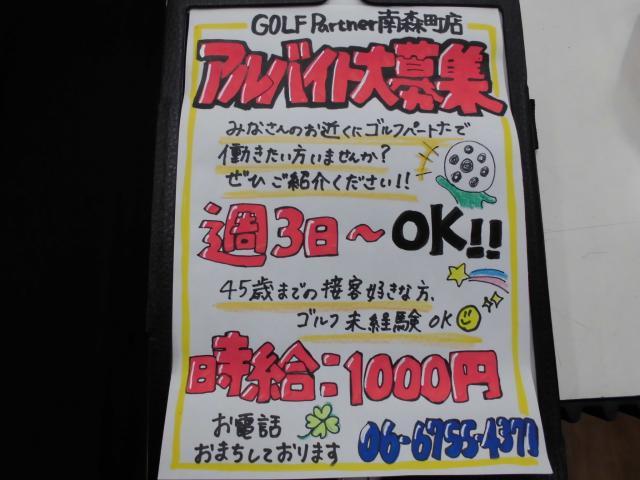 GOLF Partner南森町店
アルバイト大募集
みなさんのお近くにゴルフパートナーで
働きたい方いませんか?
ぜひご紹介ください!!
週3日～OK!!
45歳までの接客好きな方、
ゴルフ未経験OK
時給:1000円
お電話
おまちしております
06-6755-4371